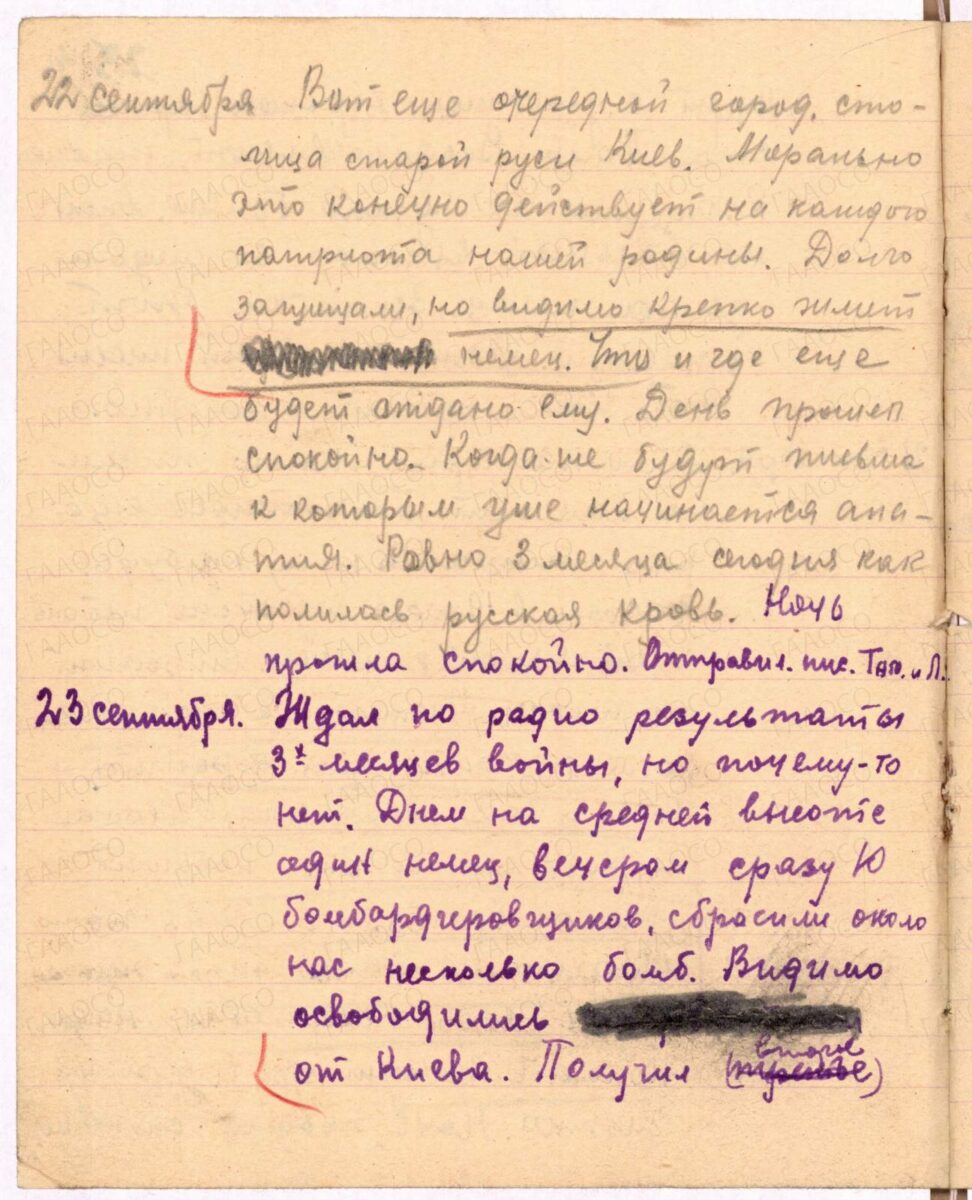 22 сентября Вот еще очередной город, сто-
лица старой руси Киев. Морально
это конечно действует на каждого
патриота нашей родины. Долго
защищали, но видимо крепко жмет
немец. Что и где еще
будет отдано ему. День прошел
спокойно. Когда-же будут письма
к которым уже начинается апа-
тия. Равно 3 месяца сегодня как
полилась русская кровь. Ночь
прошла спокойно. Отправил. пис. Тап. и Л.
23 сентября. Ждал по радио результаты
3х месяцев войны, но почему-то
нет. Днем на средней высоте
один немец, вечером сразу 10
бомбардировщиков, сбрасили около
нас несколько бомб. Видимо
освободились
от Киева. Получил (третье второе)
ГААОСО